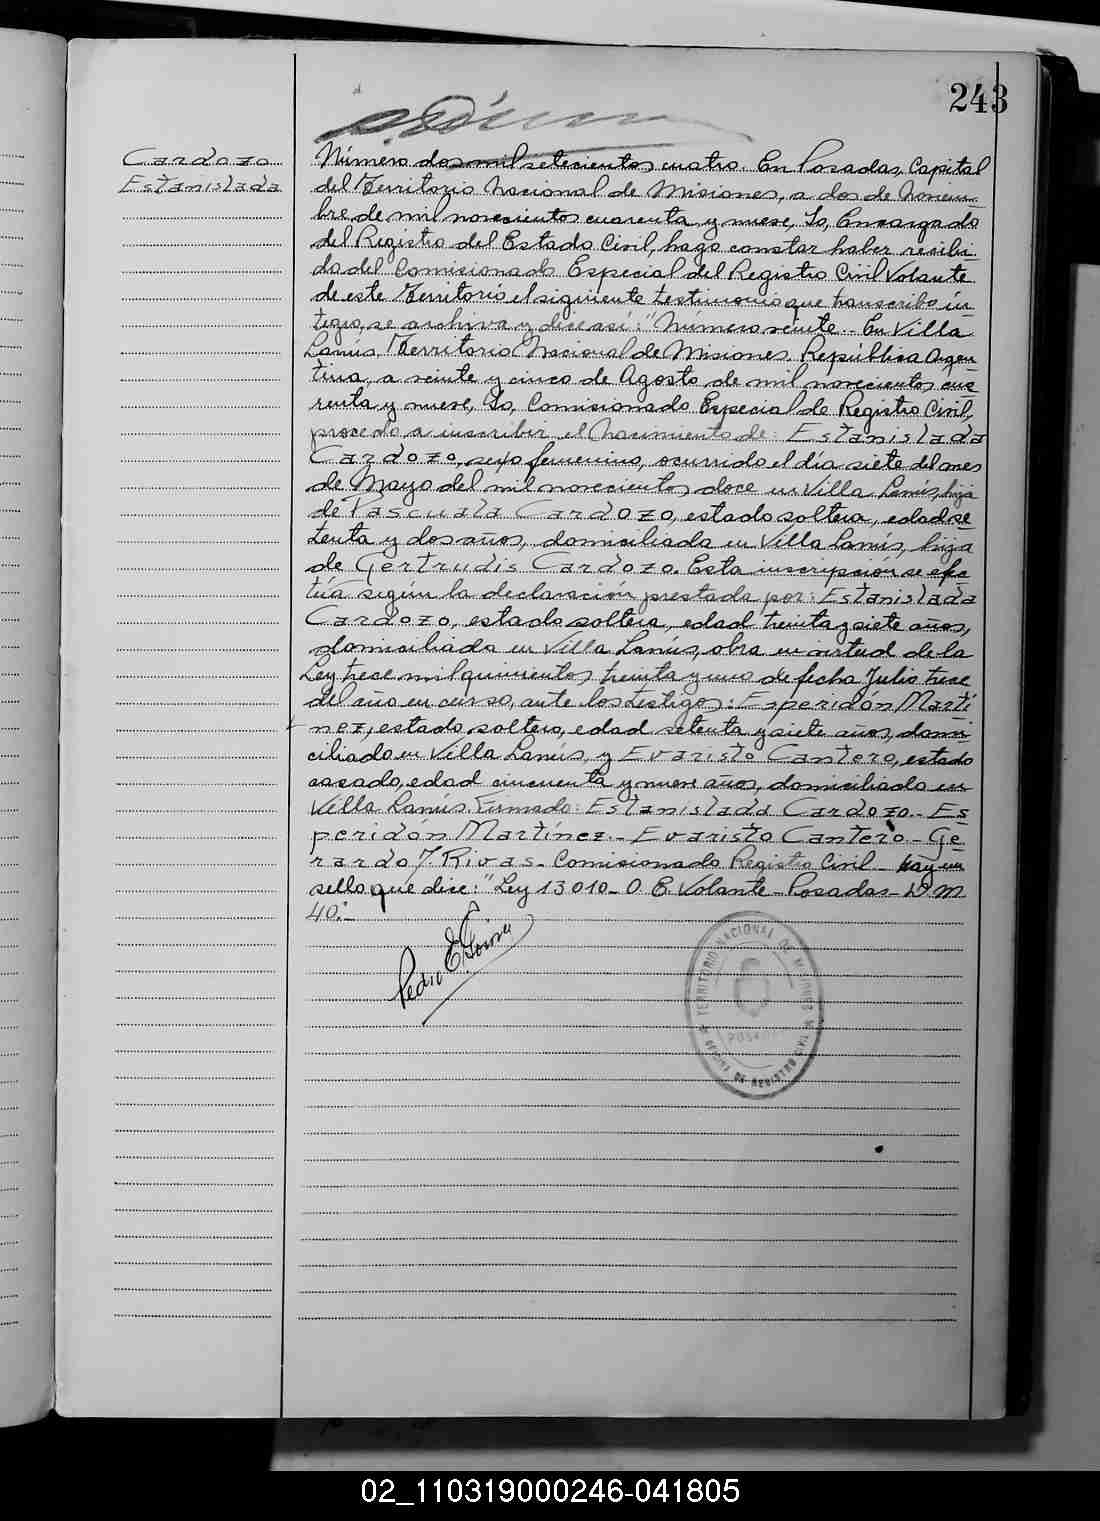 243
Cardozo
Estanislada
Número dos mil setecientos cuatro. En Posadas, Capital
del Territorio Nacional de Misiones, a dos de Noviem-
bre de mil novecientos cuarenta y nueve, Yo, Encargado
del Registro del Estado Civil, hago constar haber recibi-
do del Comisionado Especial del Registro Civil Volante
de este Territorio el siguiente testimonio que transcribo ín-
tegro, se archiva y dice así: "Número veinte.- En Villa
Lanús, Territorio Nacional de Misiones, República Argen-
tina, a veinte y cinco de Agosto de mil novecientos cua-
renta y nueve, Yo, Comisionado Especial de Registro Civil,
procedo a inscribir el Nacimiento de: Estanislada
Cardozo, sexo femenino, ocurrido el día siete del mes
de Mayo del mil novecientos doce en Villa Lanús, hija
de Pascuala Cardozo, estado soltera, edad se-
tenta y dos años, domiciliada en Villa Lanús, hija
de Gertrudis Cardozo. Esta inscripción se efec
túa según la declaración prestada por: Estanislada
Cardozo, estado soltera, edad treinta y siete años,
domiciliada en Villa Lanús, obra en virtud de la
Ley trece mil quinientos treinta y uno de fecha Julio trece
del año en curso, ante los testigos: Esperidón Martí-
nez, estado soltero, edad setenta y siete años, domi-
ciliado en Villa Lanús, y Evaristo Cantero, estado
casado, edad cincuenta y nueve años, domiciliado en
Villa Lanus. Firmado: Estanislada Cardozo.- Es-
peridón Martínez.- Evaristo Cantero.- Ge-
rardo J. Rivas- Comisionado Registro Civil- Hay un
sello que dice: "Ley 13010- O. E. Volante- Posadas- D. M
40:-
Pedro E.
TERRITORIO NACIONAL DE MISIONES
POSADAS
OFICINA DE REGISTRO CIVIL
02_110319000246-041805